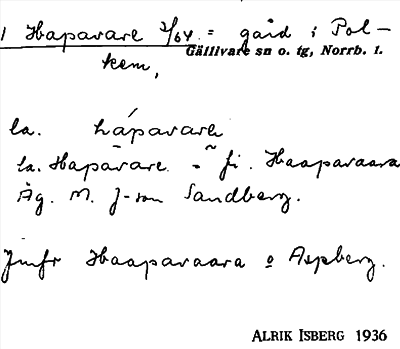 1 Hapavare 2/64 = gård i Pol-
Gällivare sn o. tg, Norrb. l.
kem,
la. hápavarē
la. Hapavare - fi. Haapavaara
Äg. M. J-son Sandberg.
Jmfr Haapavaara o Aspberg.
ALRIK ISBERG 1936